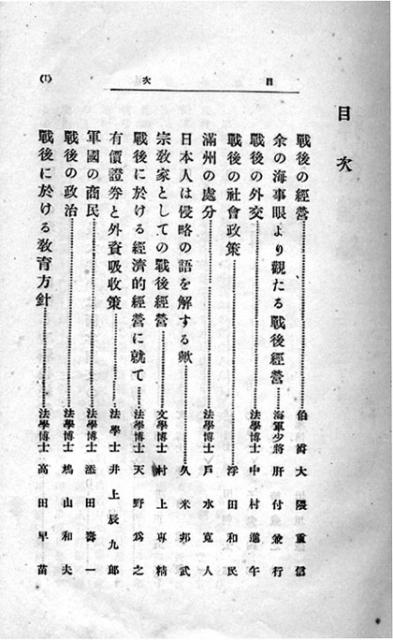 目次
(1)
目次
戰後の經營………伯爵 大隈重信
余の海事眼より觀たる戰後經營………海軍少將 肝付兼行
戰後の外交………法學博士 中村進午
戰後の社會政策………浮田和民
滿州の處分………法學博士 戶水寬人
日本人は侵略の語を解する歟………久米邦武
宗敎家としての戰後經營………文學博士 村上專精
戰後に於ける經濟的經營に就て………法學博士 天野爲之
有價證券と外資吸收策………法學士 井上辰九郎
軍國の商民………法學博士 添田壽一
戰後の政治………法學博士 鳩山和夫
戰後に於ける敎育方針………法學博士 高田早苗